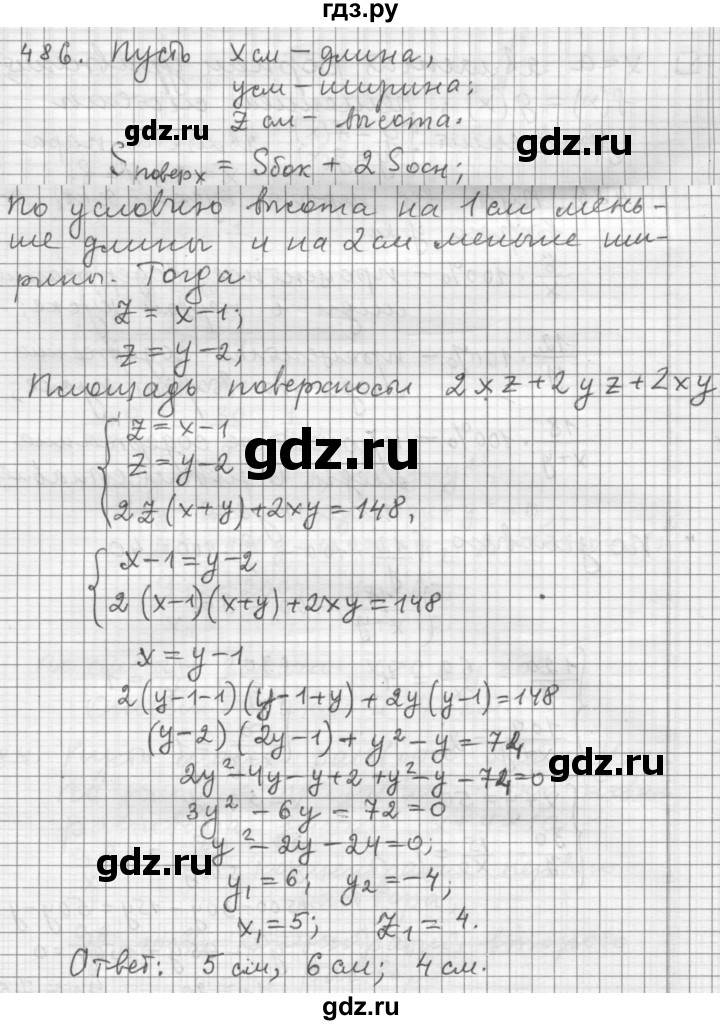 гдз.ру
486. Пусть x см – длина,
y см – ширина;
z см – высота.
gdz.ru
gdz.ru
Sповерх = Sбок + 2 Sосн;
По условию высота на 1 см мень-
ше длины и на 2 см меньше ши-
рины. Тогда
z = x-1;
z = y-2;
Площадь поверхносы 2xz+2yz+2xy
z = x-1
z = y-2
gdz.ru
2z(x+y)+2xy=148,
x-1=y-2
2(x-1)(x+y)+2xy=148
x=y-1
2(y-1-1)(y-1+y)+2y(y-1)=148
(y-2)(2y-1)+y²-y=74
gdz.ru
2y²-4y-y+2+y²-y-74=0
3y²-6y-72=0
y²-2y-24=0;
gdz.ru
y₁=6; y₂=-4;
x₁=5; z₁=4.
Ответ: 5 см, 6 см; 4 см.
gdz.ru